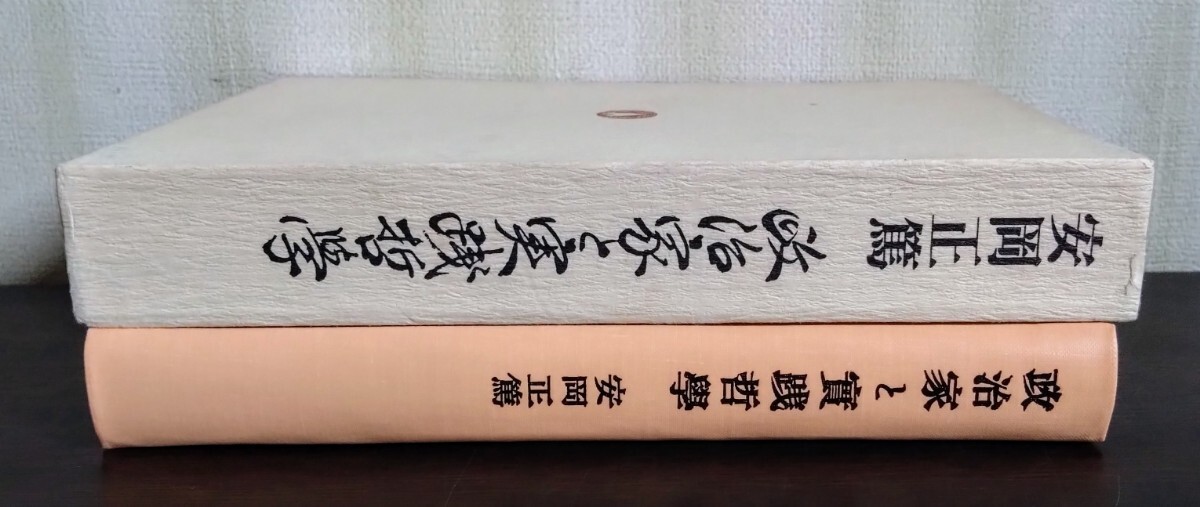 安岡正篤 政治家と実践哲學
政治家と實践哲學 安岡正篤